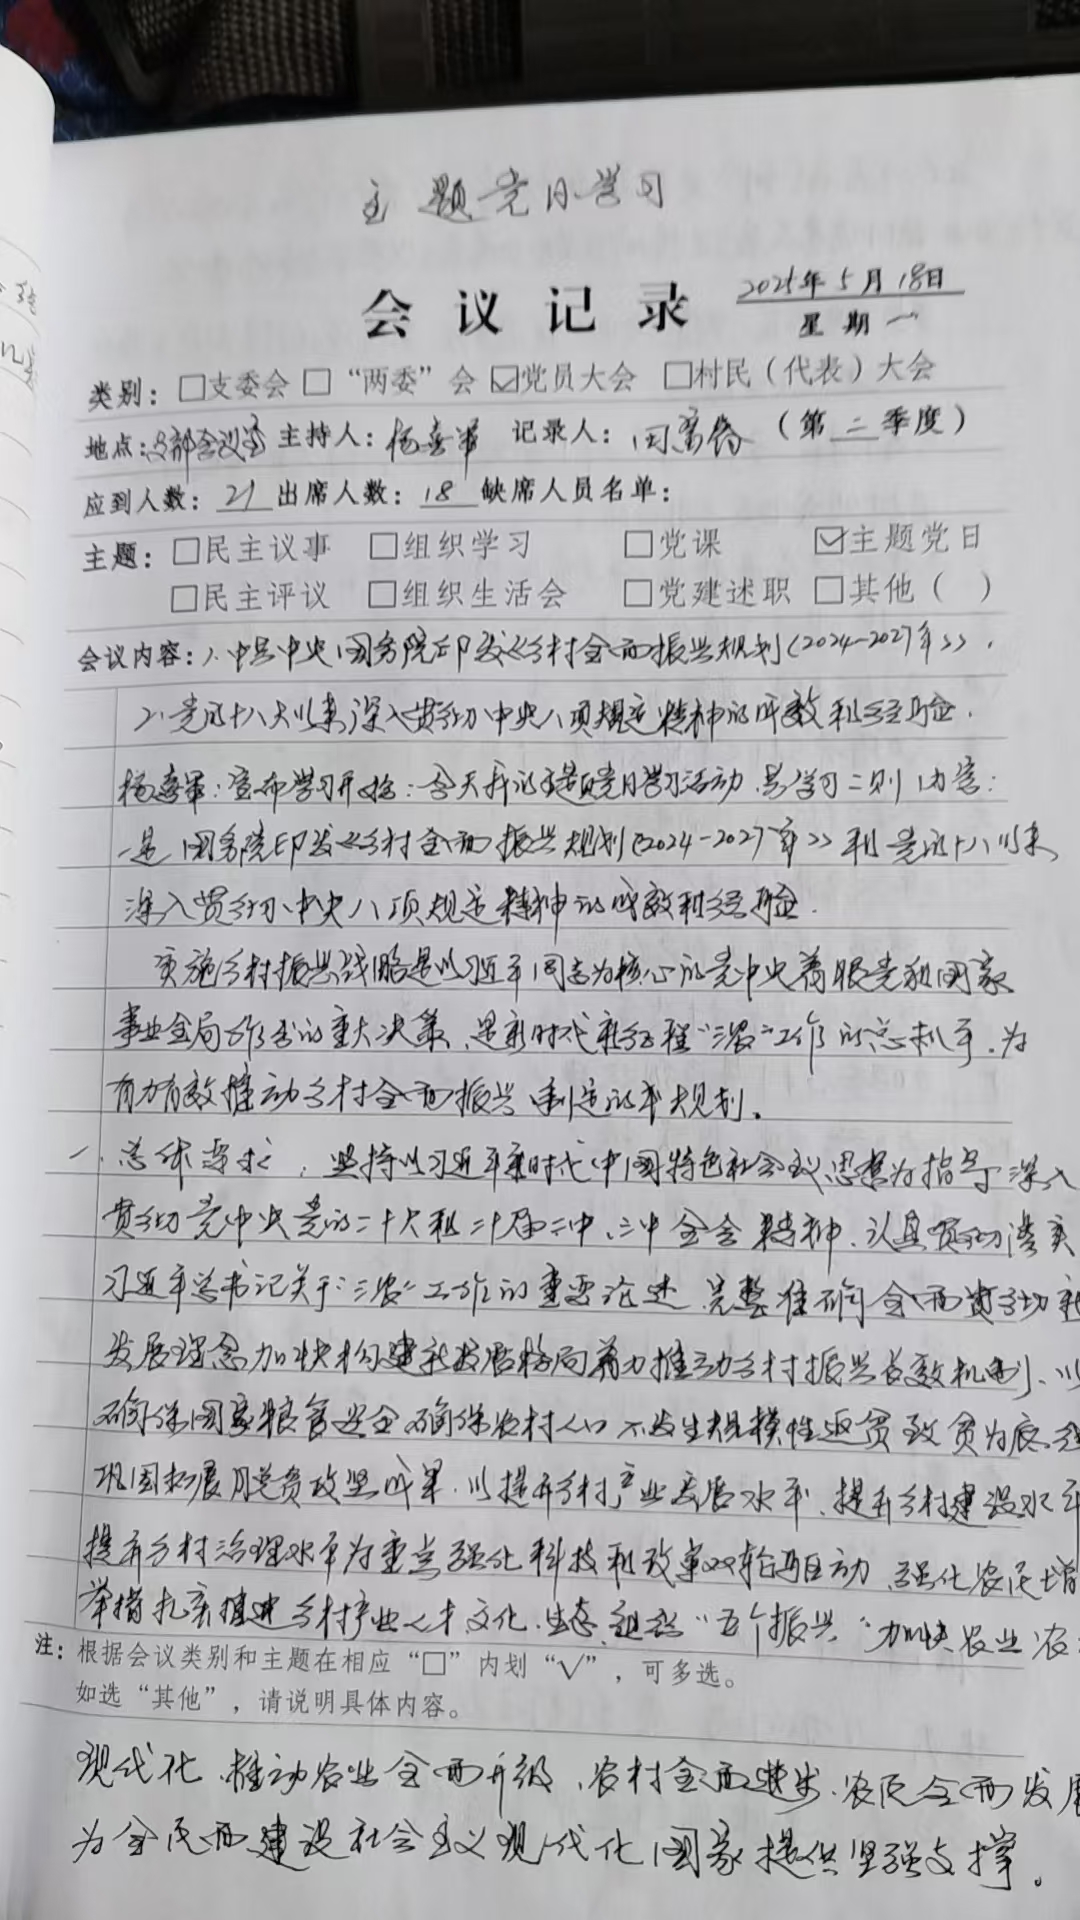 主题党日学习
会议记录 2025年5月18日
星期一
类别：□支委会 □“两委”会 ☑党员大会 □村民（代表）大会
地点：支部会议室 主持人：杨喜军 记录人： （第二季度）
应到人数：21 出席人数：18 缺席人员名单：
主题：□民主议事 □组织学习 □党课 ☑主题党日
□民主评议 □组织生活会 □党建述职 □其他（ ）
会议内容：1.中共中央国务院印发《乡村全面振兴规划（2024—2027年》》.
2.党的十八大以来深入贯彻中央八项规定精神的成效和经验.
杨喜军：宣布学习开始：今天我们主题党日学习活动,共学习二则内容：
一是国务院印发《乡村全面振兴规划(2024-2027年》》和党的十八以来
深入贯彻中央八项规定精神的成效和经验.
实施乡村振兴战略是以习近平同志为核心的党中央着眼党和国家
事业全局作出的重大决策、是新时代新征程“三农”工作的总抓手.为
有力有效推动乡村全面振兴制定的本规划。
一、总体要求：坚持以习近平新时代中国特色社会主义思想为指导深入
贯彻党中央党的二十大和二十届二中、三中全会精神.认真贯彻落实
习近平总书记关于“三农”工作的重要论述.完整准确全面贯彻新
发展理念加快构建新发展格局着力推动乡村振兴长效机制、以
确保国家粮食安全确保农村人口不发生规模性返贫致贫为底线
巩固拓展脱贫攻坚成果.以提升乡村产业发展水平、提升乡村建设水平
提升乡村治理水平为重点强化科技和改革双轮驱动、强化农民增
举措扎实推进乡村产业人才文化.生态.组织“五个振兴”加快农业农
注：根据会议类别和主题在相应“□”内划“√”，可多选。
如选“其他”，请说明具体内容。
现代化、推动农业全面升级、农村全面进步.农民全面发展
为全民面建设社会主义现代化国家提供坚强支撑。